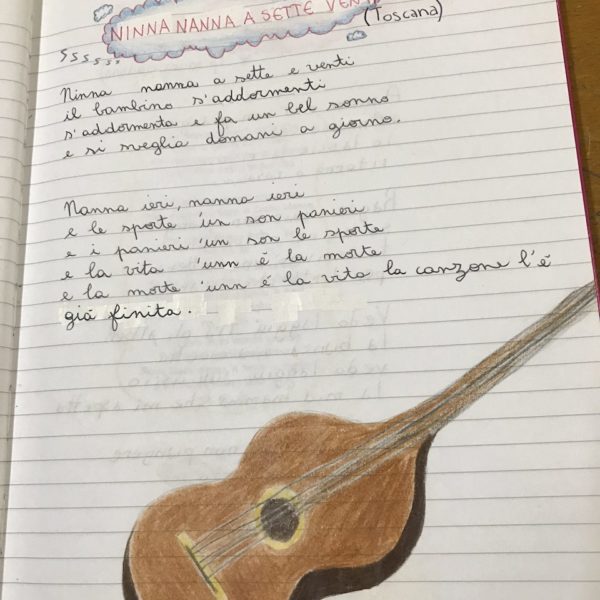 NINNA NANNA A SETTE VENTI
(Toscana)
sssss,
Ninna nanna a sette e venti
il bambino s'addormenti
s'addormenta e fa un bel sonno
e si sveglia domani a giorno.
Nanna ieri, nanna ieri
e le sporte 'un son panieri
e i panieri 'un son le sporte
e la vita 'unn é la morte
e la morte 'unn é la vita la canzone l'é
giá finita.